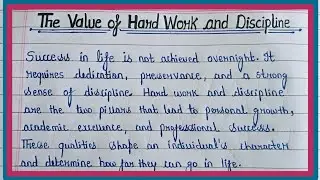 The Value of Hard Work and Discipline
Success in life is not achieved overnight. It
requires dedication, preservance, and a strong
sense of discipline. Hard work and discipline
are the two pillars that lead to personal growth,
academic excellence, and professional success.
These qualities shape an individual's character
and determine how far they can go in life.